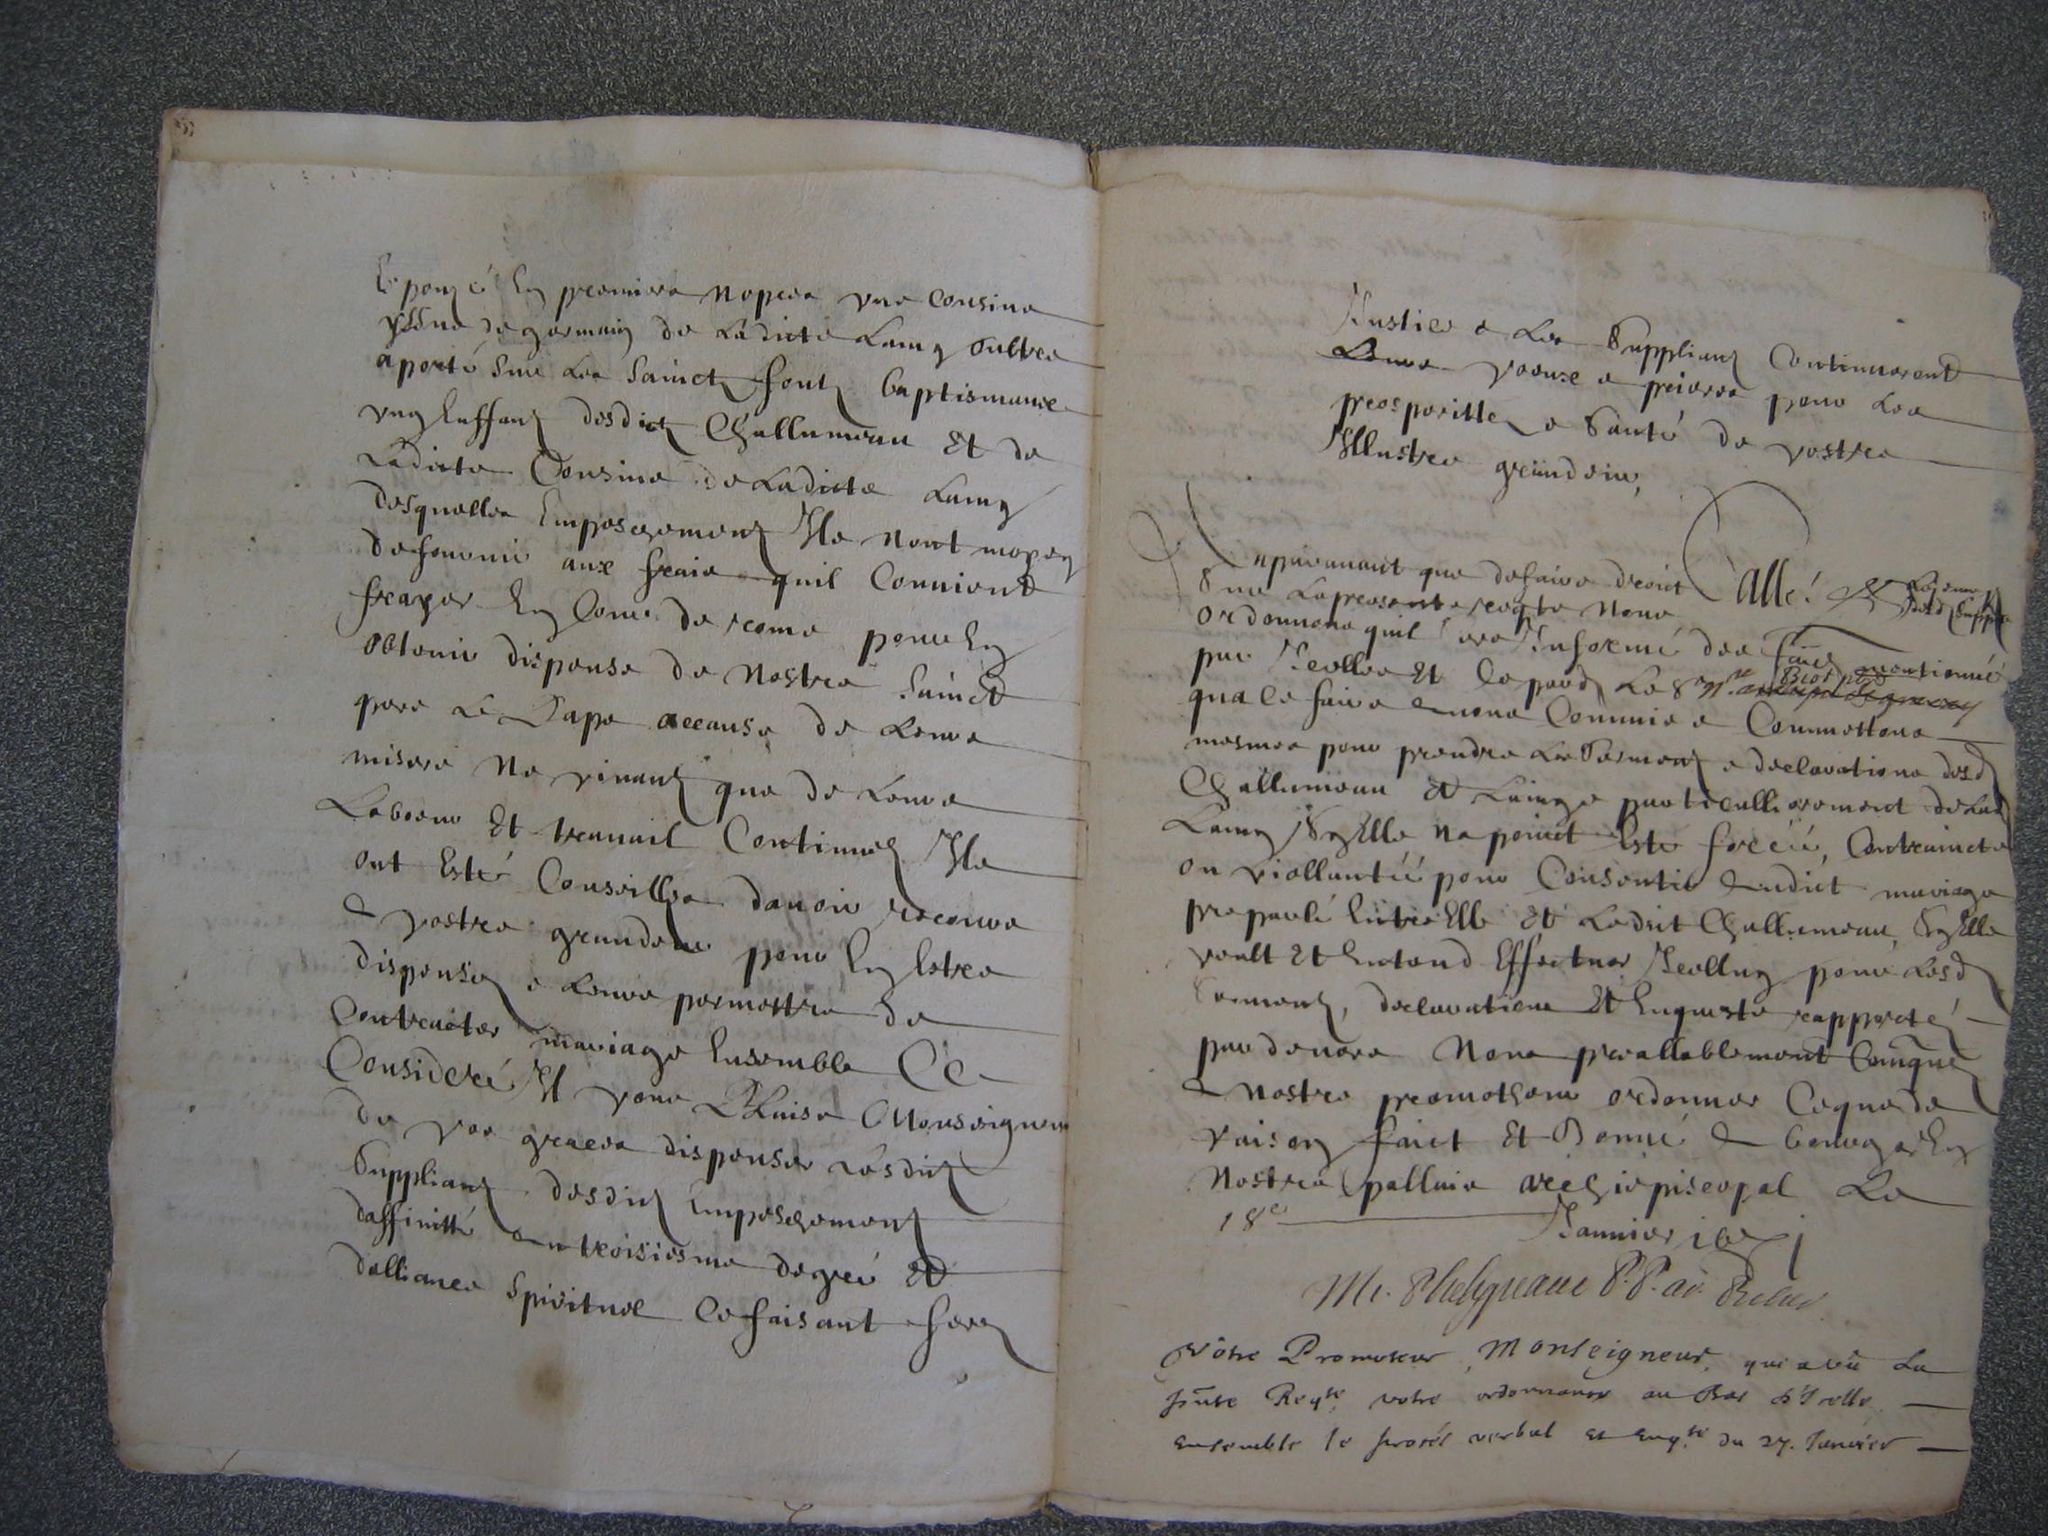 Espouzé En premiere nopces une Cousine
yssue de germain de Ladicte Lamy Oultre
a porté sur Les sainctz fontz baptismaux
ung Enffant desdictz Challumeau Et de
Ladicte Cousine de Ladicte Lamy
desquelles Empeschementz Ils n'ont moyen
de fournir aux frais quil Convient
frayer En Cour de rome pour En
obtenir dispense de Nostre Sainct
pere Le Pape accause de Leure
misere Ne vivantz que de Leure
Labeeur Et travail Continuel Ils
ont Esté Conseilles davoir recoure
a vostre grandeur pour En Estre
dispensez e Leure permettre de
Contracter mariage Ensemble Ce
Consideré Il vous Plaise Monseigneur
de vos graces dispenser Lesdictz
Supplians desdictz Empeschementz
daffinitté au troisiesme degré Et
dalliance Spirituel Ce faisant ferez
Justice e Les Supplianz Continueront
Leure voeux e prieres pour Les
prosperittez e Santé de vostre
Illustre grandeur,
Auparavant que de faire droict
Sur La presente reqte Nous
ordonnons quil sera Informé des faictz mentionnés
par Icelles Et Ce pard Le Sr
qua ce faire avons Commis e Commettons
mesmes pour prendre Les Sermentz e declarations desd
Challumeau Et Lamy e particullierement de Lad
Lamy Sy Elle na poinct Esté forcée, Contraincte
ou viollantéé pour Consentir audict mariage
proparlé Entre Elle Et Ledict Challumeau, Sy Elle
veult Et Entend Effectuer Icelluy pour Lesd
Sermentz, declarations Et Enqueste rapportéz
par devers Nous preallablement Comqué
a Nostre promotheur ordonner Ce que de
raison faict Et Donné a bourges En
Nostre pallais archiepiscopal Le
18e Janvier
Vôtre Promoteur, Monseigneur, qui a vû La
pñte Reqte, votre ordonnance au Bas d'Icelle,
ensemble le procés verbal et enqte du 27. Janvier